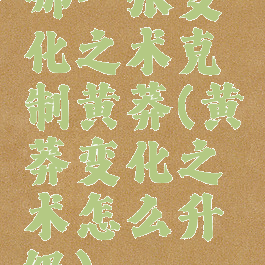 变
化之术克
制黄莽(黄
莽变化之
术怎么升